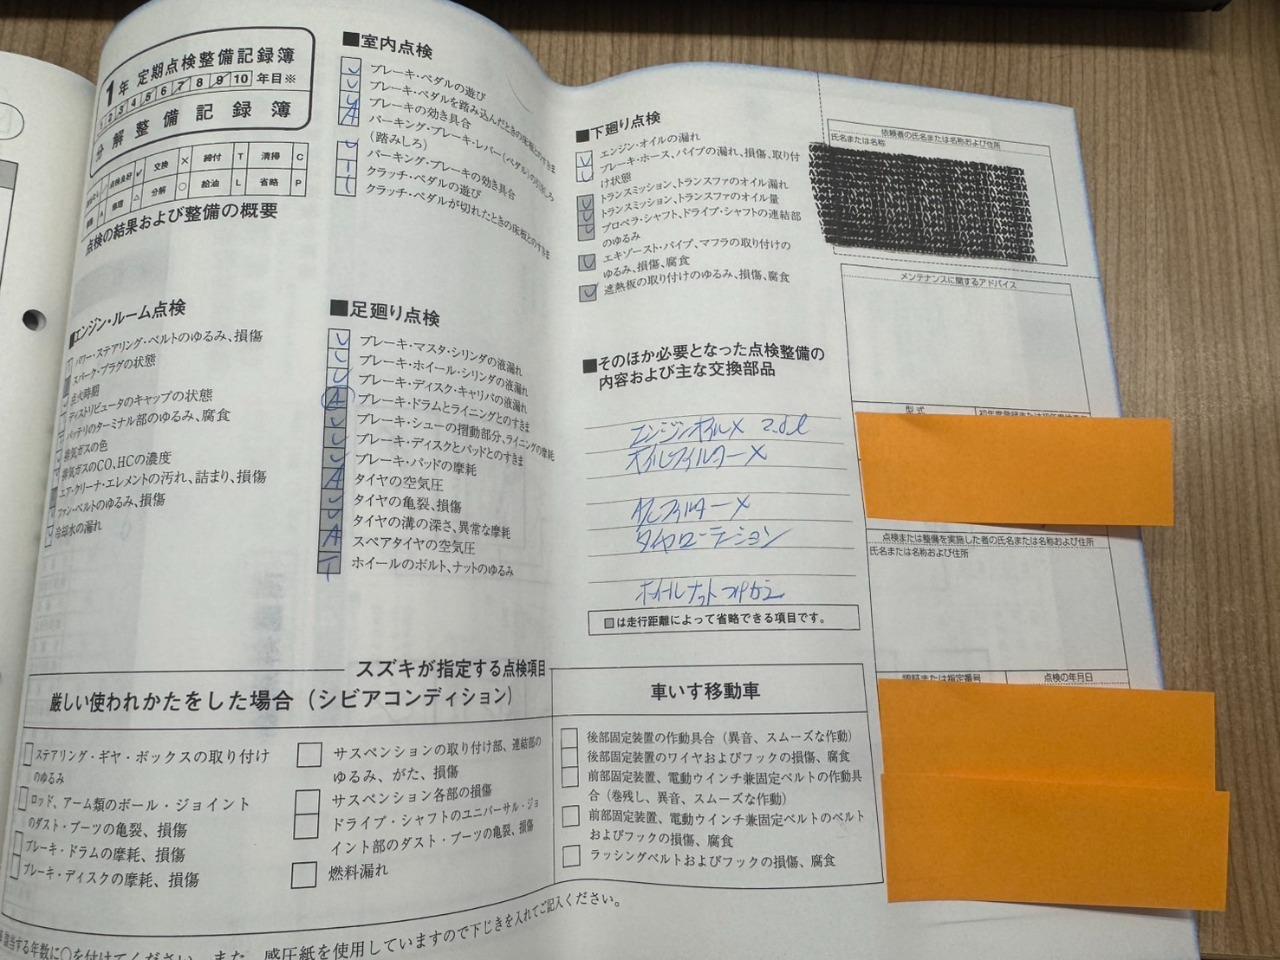 1年 定期点検整備記録簿
1 2 3 4 5 6 7 8 9 10 年目※
分解整備記録簿
点検良好 レ 交換 × 締付 T 清掃 C
A 修理 △ 分解 ○ 給油 L 省略 P
点検の結果および整備の概要
■エンジン・ルーム点検
パワー・ステアリング・ベルトのゆるみ、損傷
スパーク・プラグの状態
点火時期
ディストリビュータのキャップの状態
バッテリのターミナル部のゆるみ、腐食
排気ガスの色
排気ガスのCO、HCの濃度
エア・クリーナ・エレメントの汚れ、詰まり、損傷
ファン・ベルトのゆるみ、損傷
冷却水の漏れ
■室内点検
レ ブレーキ・ペダルの遊び
レ ブレーキ・ペダルを踏み込んだときの床板とのすきま
レ ブレーキの効き具合
A パーキング・ブレーキ・レバー(ペダル)の引きしろ
(踏みしろ)
レ パーキング・ブレーキの効き具合
T クラッチ・ペダルの遊び
クラッチ・ペダルが切れたときの床板とのすきま
■足廻り点検
レ ブレーキ・マスタ・シリンダの液漏れ
レ ブレーキ・ホイール・シリンダの液漏れ
レ ブレーキ・ディスク・キャリパの液漏れ
A ブレーキ・ドラムとライニングとのすきま
レ ブレーキ・シューの摺動部分、ライニングの摩耗
レ ブレーキ・ディスクとパッドとのすきま
レ ブレーキ・パッドの摩耗
A タイヤの空気圧
レ タイヤの亀裂、損傷
レ タイヤの溝の深さ、異常な摩耗
A スペアタイヤの空気圧
T ホイールのボルト、ナットのゆるみ
■下廻り点検
レ エンジン・オイルの漏れ
レ ブレーキ・ホース、パイプの漏れ、損傷、取り付
け状態
レ トランスミッション、トランスファのオイル漏れ
レ トランスミッション、トランスファのオイル量
レ プロペラ・シャフト、ドライブ・シャフトの連結部
のゆるみ
レ エキゾースト・パイプ、マフラの取り付けの
ゆるみ、損傷、腐食
レ 遮熱板の取り付けのゆるみ、損傷、腐食
■そのほか必要となった点検整備の
内容および主な交換部品
エンジンオイル×
オイルフィルター×
フィルター×
タイヤローテーション
ホイールナット
■は走行距離によって省略できる項目です。
依頼者の氏名または名称および住所
氏名または名称
メンテナンスに関するアドバイス
型式
点検または整備を実施した者の氏名または名称および住所
氏名または名称および住所
点検の年月日
スズキが指定する点検項目
厳しい使われかたをした場合(シビアコンディション)
ステアリング・ギヤ・ボックスの取り付け
のゆるみ
ロッド、アーム類のボール・ジョイント
のダスト・ブーツの亀裂、損傷
ブレーキ・ドラムの摩耗、損傷
ブレーキ・ディスクの摩耗、損傷
サスペンションの取り付け部、連結部の
ゆるみ、がた、損傷
サスペンション各部の損傷
ドライブ・シャフトのユニバーサル・ジョ
イント部のダスト・ブーツの亀裂、損傷
燃料漏れ
車いす移動車
後部固定装置の作動具合(異音、スムーズな作動)
後部固定装置のワイヤおよびフックの損傷、腐食
前部固定装置、電動ウインチ兼固定ベルトの作動具
合(巻残し、異音、スムーズな作動)
前部固定装置、電動ウインチ兼固定ベルトのベルト
およびフックの損傷、腐食
ラッシングベルトおよびフックの損傷、腐食
該当する年数に○を付けてください。また、感圧紙を使用していますので下じきを入れてご記入ください。